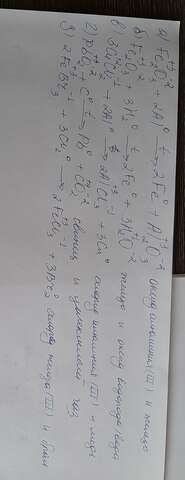 а) Fe₂⁺³O₃⁻² + 2Al⁰ →ᵗ 2Fe⁰ + Al₂⁺³O₃⁻² оксид алюминия (III) и железо
б) Fe₂⁺³O₃⁻² + 3H₂⁰ →ᵗ 2Fe⁰ + 3H₂⁺O⁻² железо и оксид водорода вода
в) 3CuCl₂⁻¹ + 2Al⁰ →ᵗ 2AlCl₃⁻¹ + 3Cu⁰ хлорид алюминия (III) и медь
г) 2PbO⁻² + C⁰ →ᵗ Pb⁰ + CO₂⁻² свинец и углекислый газ
д) 2FeBr₃⁻¹ + 3Cl₂⁰ → 2FeCl₃⁻¹ + 3Br₂⁰ хлорид железа (III) и бром